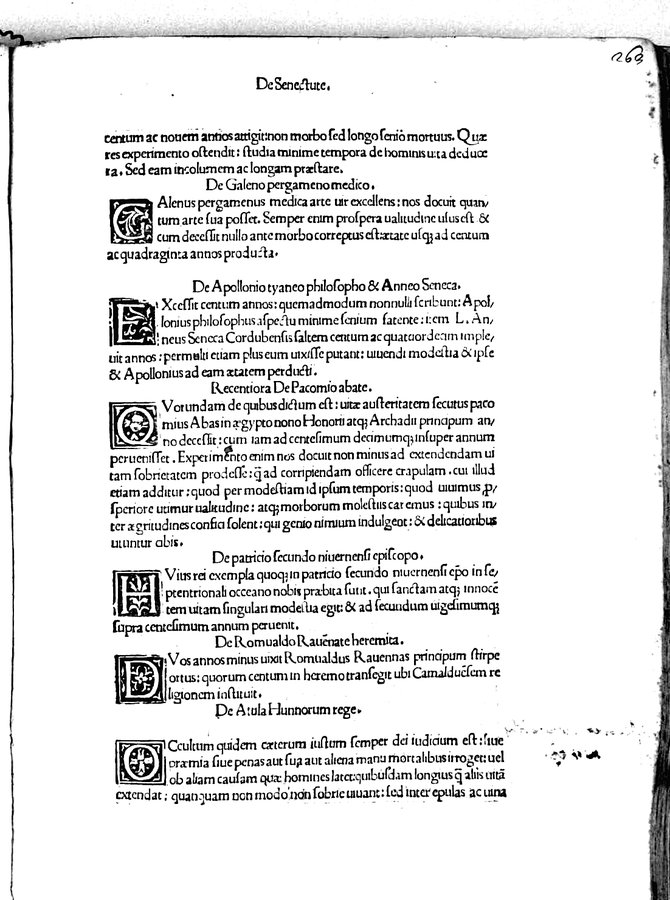 268
De Senectute.
centum ac nouem annos attigit: non morbo sed longo senio mortuus. Quæ
res experimento ostendit: studia minime tempora de hominis uita deduce
re. Sed eam incolumem ac longam præstare.
De Galeno pergameno medico.
GAlenus pergamenus medica arte uir excellens: nos docuit quan/
tum arte sua posset. Semper enim prospera ualitudine usus est &
cum decessit nullo ante morbo correptus est: ætate usq; ad centum
ac quadraginta annos producta.
De Apollonio tyaneo philosopho & Anneo Seneca.
EXcessit centum annos: quemadmodum nonnulli scribunt: Apol/
lonius philosophus aspectu minime senium fatente: item L. An/
neus Seneca Cordubensis saltem centum ac quatuordecim imple/
uit annos: permulti etiam plus eum uixisse putant: uiuendi modestia & ipse
& Apollonius ad eam ætatem perducti.
Recentiora De Pacomio abate.
QVorundam de quibus dictum est: uitæ austeritatem secutus paco
mius Abas in ægypto nono Honorii atq; Archadii principum an/
no decessit: cum iam ad centesimum decimumq; insuper annum
peruenisset. Experimento enim nos docuit non minus ad extendendam ui
tam sobrietatem prodesse: q̃ ad corripiendam officere crapulam. cui illud
etiam additur: quod per modestiam id ipsum temporis: quod uiuimus p/
speriore utimur ualitudine: atq; morborum molestiis caremus: quibus in/
ter ægritudines confici solent: qui genio nimium indulgent: & delicatioribus
utuntur cibis.
De patricio secundo niuernensi episcopo.
HVius rei exempla quoq; in patricio secundo niuernensi ep̃o in se/
ptentrionali occeano nobis præbita sunt. qui sanctam atq; innocē
tem uitam singulari modestia egit: & ad secundum uigesimumq;
supra centesimum annum peruenit.
De Romualdo Rauēnate heremita.
DVos annos minus uixit Romualdus Rauennas principum stirpe
ortus: quorum centum in heremo transegit ubi Camalduēsem re
ligionem instituit.
De Atila Hunnorum rege.
OCcultum quidem cæterum iustum semper dei iudicium est: siue
præmia siue penas aut sua aut aliena manu mortalibus irroget: uel
ob aliam causam quæ homines latet: quibusdam longius q̃ aliis uitā
extendat: quanquam non modo non sobrie uiuant: sed inter epulas ac uina